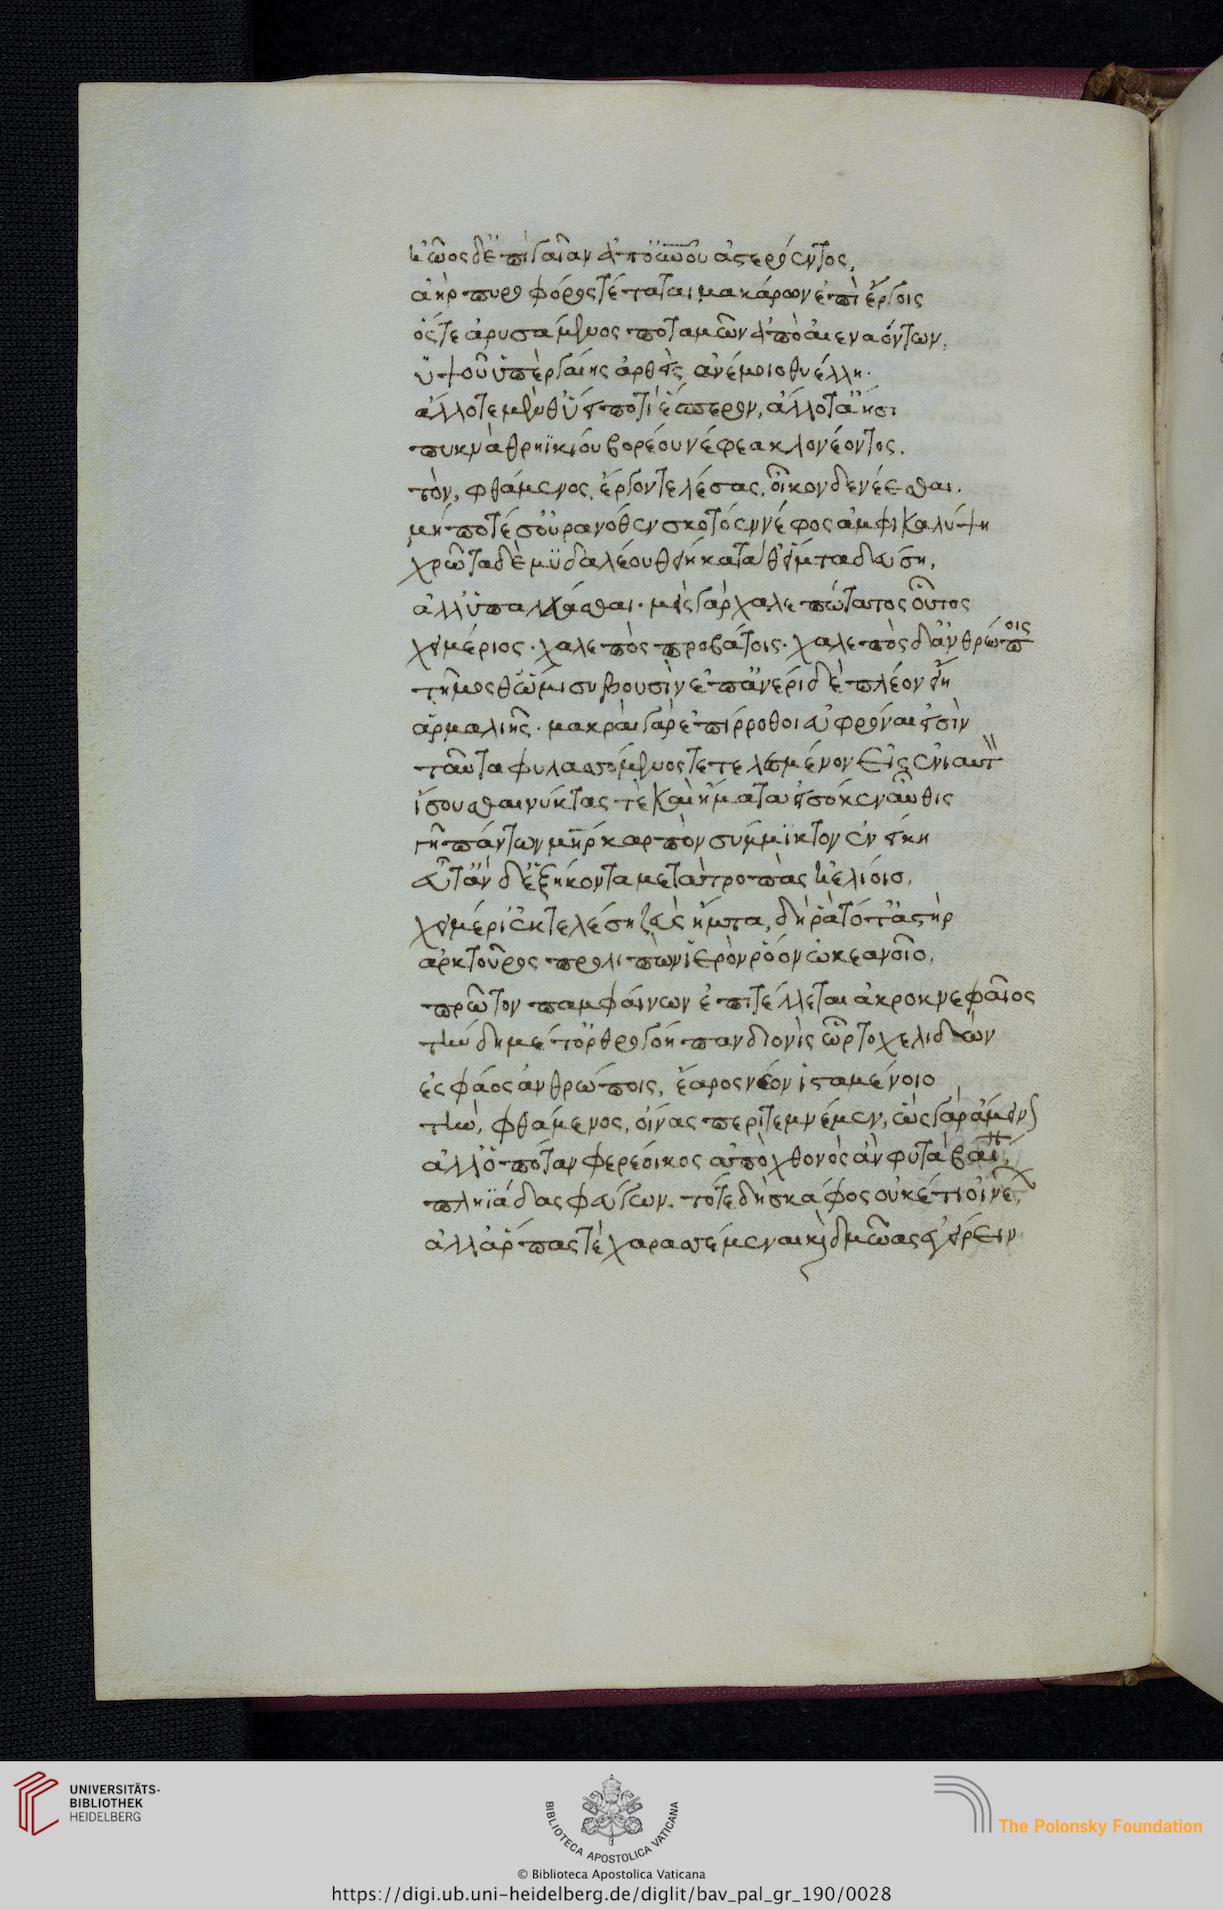 ἠῶος δ' ἐπὶ γαῖαν ἀπ' οὐρανοῦ ἀστερόεντος,
ἀὴρ πυροφόρος τέταται μακάρων ἐπὶ ἔργοις
ὅς τε ἀρυσάμενος ποταμῶν ἀπὸ αἰεναόντων,
ὑψοῦ ὑπὲρ γαίης ἀρθεὶς ἀνέμοιο θυέλλη.
ἄλλοτε μὲν θ' ὕει ποτὶ ἕσπερον, ἄλλοτ' ἄησι
πυκνὰ θρηϊκίου βορέου νέφεα κλονέοντος.
τὸν, φθάμενος, ἔργον τελέσας, οἶκον δε νέεσθαι.
μήποτέ σ' οὐρανόθεν σκοτόεν νέφος ἀμφικαλύψη
χρῶτα δὲ μϋδαλέου θείη κατά θ' εἵματα δεύση,
ἀλλ' ὑπαλεύασθαι. μεὶς γὰρ χαλεπώτατος οὗτος
χειμέριος. χαλεπὸς προβάτοις. χαλεπὸς δ' ἀνθρώποις
τῆμος θ' ὤμισυ βουσὶν ἐπ' ἀνέρι δὲ πλέον εἴη
ἁρμαλιῆς. μακραὶ γὰρ ἐπίρροθοι εὐφρόναι εἰσὶν
ταῦτα φυλασσόμενος τετελεσμένον εἰς ἐνιαυτ
ἰσοῦσθαι νύκτας τὲ καὶ ἤματα εἰσόκεν αὖθις
γῆ πάντων μήτηρ καρπὸν σύμμϊκτον ἐνείκη
εὖτ' ἂν δ' ἑξήκοντα μετὰ τροπὰς ἠελίοιο,
χειμέρι' ἐκτελέση ζεὺς ἤματα, δή ῥα τότ' ἀστὴρ
ἀρκτοῦρος προλιπὼν ἱερὸν ῥόον ὠκεανοῖο,
πρῶτον παμφαίνων ἐπιτέλλεται ἀκροκνεφαῖος
τὴν δὴ μέτ' ὀρθρογόη πανδιονὶς ὦρτο χελιδών
ἐς φάος ἀνθρώποις, ἔαρος νέον ἱσταμένοιο
τὴν, φθάμενος, οἴνας περιτεμνέμεν, ὣς γὰρ ἄμεινον
ἀλλ' ὁπόταν φερέοικος ἀπὸ χθονὸς ἂν φυτὰ βαίνη
πληϊάδας φεύγων. τότε δὴ σκάφος οὐκέτι οἰνέ
ἀλλ' ἅρπας τὲ χαρασσέμεναι καὶ δμῶας ἐγείρειν
UNIVERSITÄTS-
BIBLIOTHEK
HEIDELBERG
BIBLIOTECA APOSTOLICA VATICANA
The Polonsky Foundation
© Biblioteca Apostolica Vaticana
https://digi.ub.uni-heidelberg.de/diglit/bav_pal_gr_190/0028